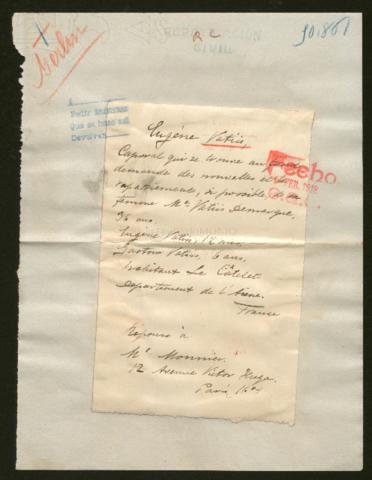 X
Berlin
R e
50.861
Pedir
Que se
Devolver
Eugène Vatin,
Caporal qui se trouve au
demande des nouvelles et le
rapatriement, si possible, de sa
femme Me Vatin Demarque,
36 ans.
Eugène Vatin, 12 ans.
Gaston Vatin, 6 ans.
habitant Le Câtelet
Departement de l'Aisne.
France
Réponse à
Mr Monnier.
12 Avenue Victor Hugo.
Paris
Hecho
1918